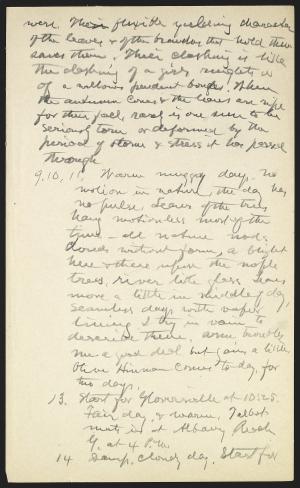 were. Their flexible yielding character
of the leaves & of the branches that hold them
saves them. Their clashing is like
the clashing of a girls ringlets or
of a willows pendent boughs. When
the autumn comes & the leaves are ripe
for their fall, rarely is one seen to be
serious torn or deformed by the
period of storm & stress it has passed
through
9, 10, 11, Warm muggy days, no
motion in nature, the day has
no pulse. Leaves of the trees
hang motionless most of the
time - all nature nods
clouds without form, a blight
here & there upon the maple
trees, river like glass, leaves
move a little in middle of day,
seamless days with vapor
I try in vain to
describe them. Arm troubles
me a good deal but gains a little
Olive Hinman comes to day for
two days.
13. Start for Gloversville at 10:25.
Fair day & warm. Talbot
meets us at Albany Reach
G. at 4 P.M.
14 Damp, cloudy day. Start for